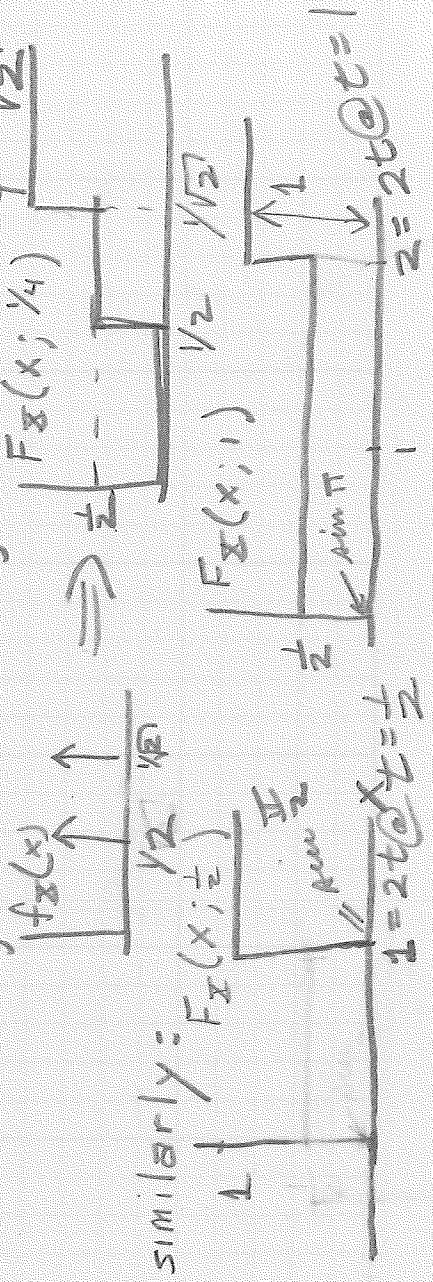 √2
f_X(x)
1/2
1/√2
⇒
F_X(x; 1/4)
1/2
1/2
1/√2
similarly:
F_X(x; 1/2)
1
π/2
x
1 = 2t @ t = 1/2
F_X(x; 1)
1/2
sin π
1
1
2 = 2t @ t = 1